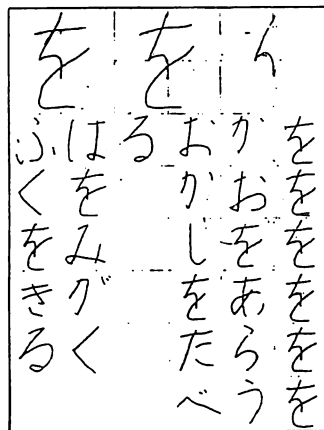 を
を
をををををを
かおをあらう
おかしをたべ
る
はをみがく
ふくをきる